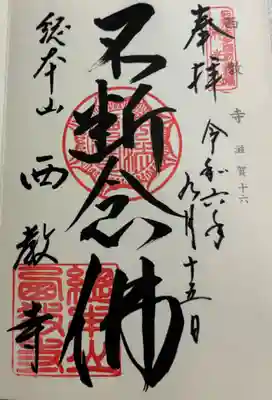 西教寺 滋賀十六
奉拝 令和六年九月十五日
不断念佛
総本山 西教寺